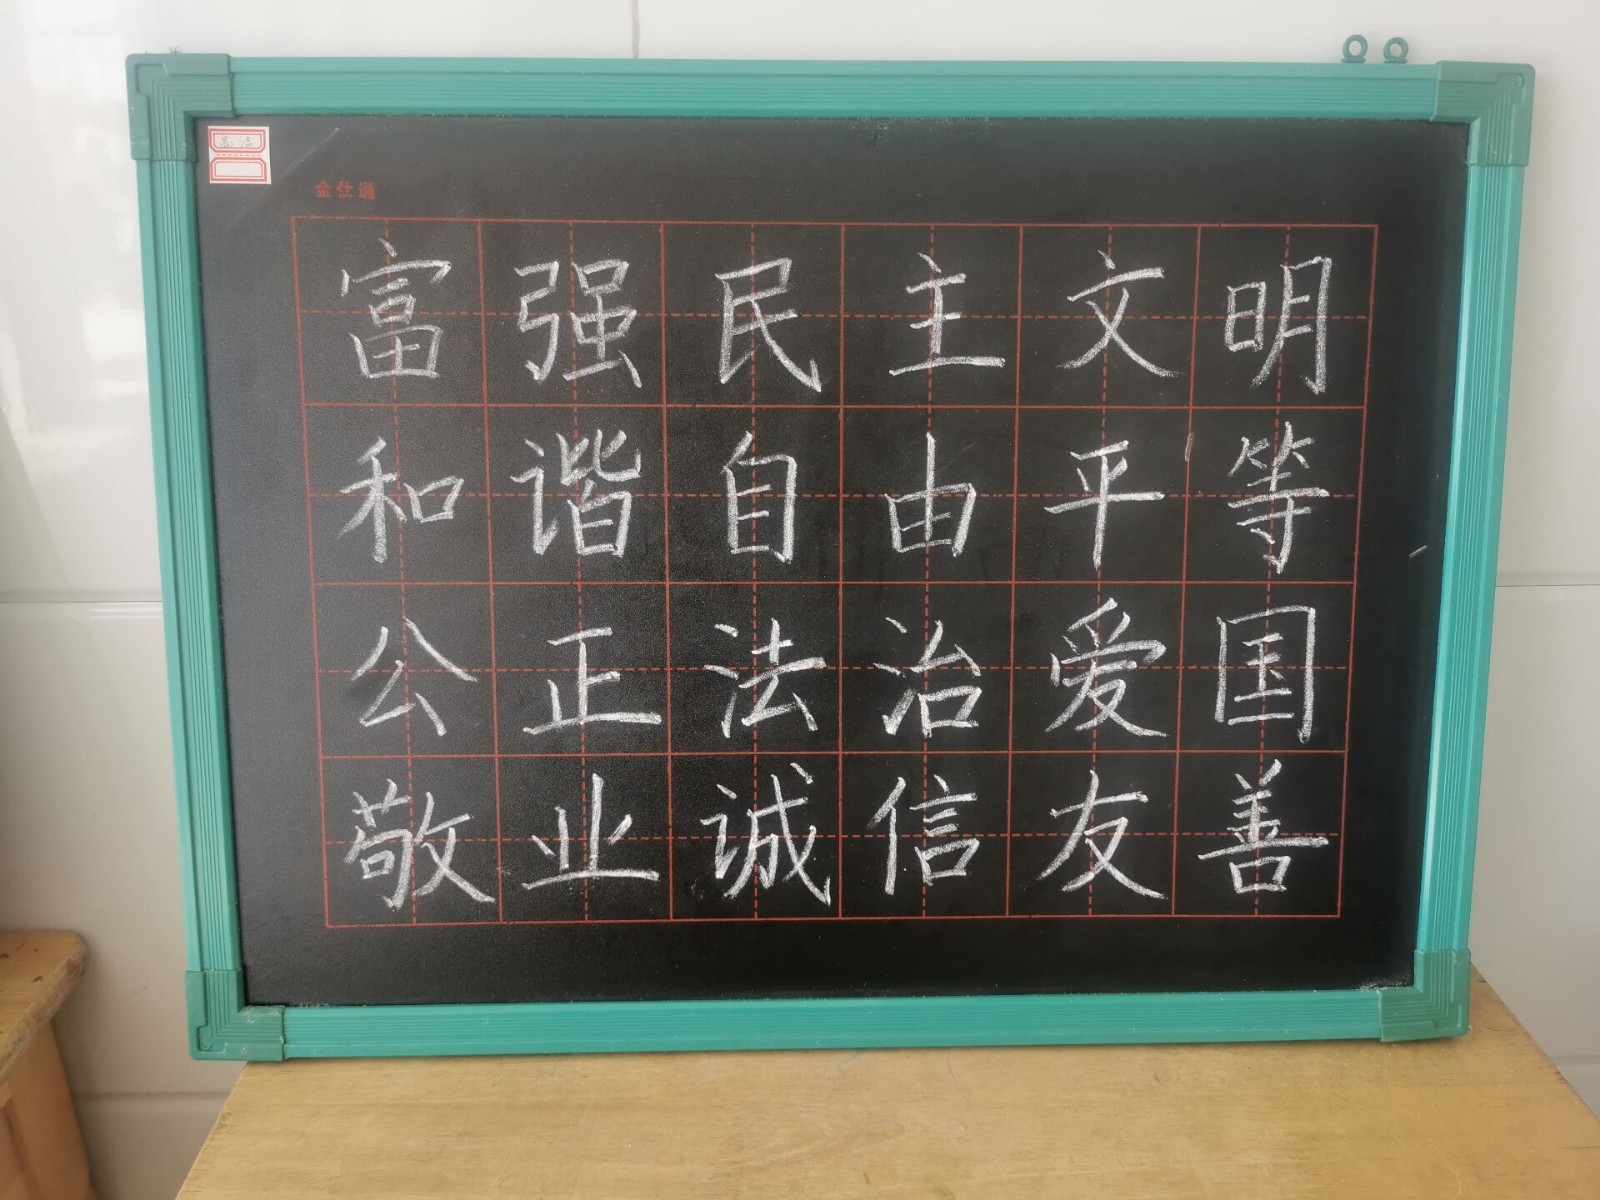 金仕通
富强民主文明
和谐自由平等
公正法治爱国
敬业诚信友善